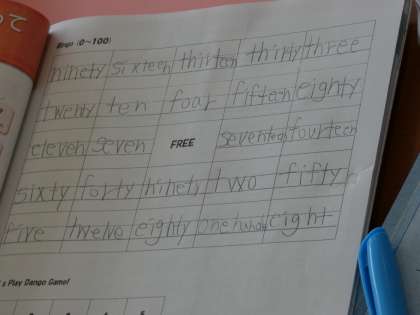 Bingo (0~100)
ninety sixteen thirteen thirty three
twenty ten four fifteen eighty
eleven seven FREE seventeen fourteen
sixty forty two fifty
five twelve eighty one eight
Play Dango Game!